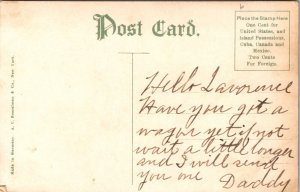 Post Card.
Place the Stamp Here
One Cent for
United States, and
Island Possessions,
Cuba, Canada and
Mexico.
Two Cents
For Foreign.
Hello Lavorence
Have you got a
wagon yet if not
wait a little longer
and I will send
you one Daddy